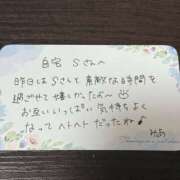 自宅 Sさんへ
昨日はSさんと素敵な時間を
過ごせて嬉しかったよ〜
お互いいっぱい気持ちよく
なってヘトヘトだったね♪